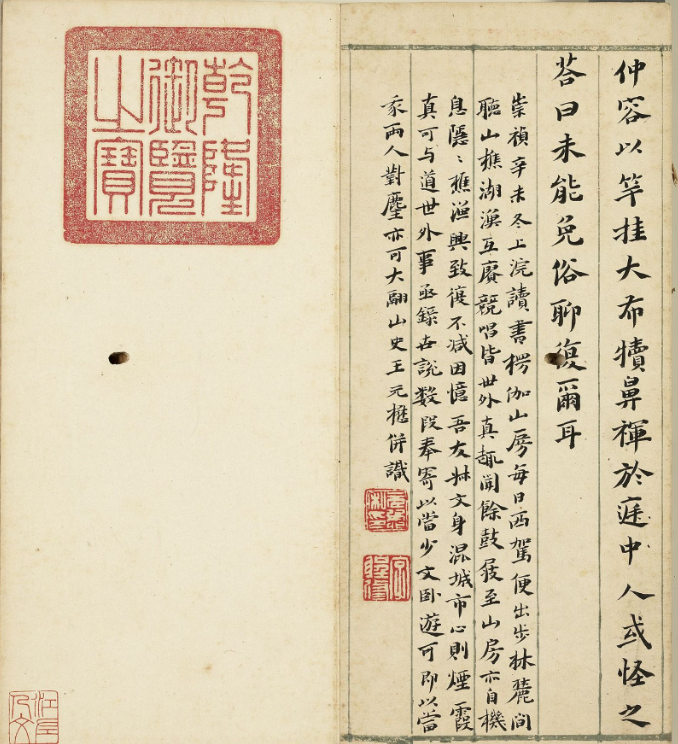 仲容以竿挂大布犢鼻褌於庭中人或怪之
荅曰未能免俗聊復爾耳
崇禎辛未冬上浣讀書楞伽山房每日西駕便出步林麓間
聽山樵湖漁互賡競唱皆世外真趣聞餘鼓屐至山房亦自機
息隱〻樵漁興致復不減因憶吾友文身混城市心則煙霞
真可与道世外事亟錄世說数段奉寄以當少文卧遊可即以當
兩人對麈亦可大山史王元懋併識
乾隆
御覽
之寶